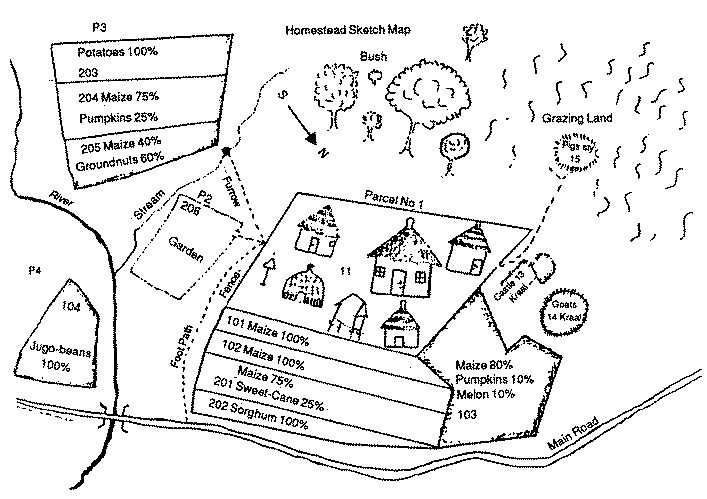 Homestead Sketch Map
P3
Potatoes 100%
203
204 Maize 75%
Pumpkins 25%
205 Maize 40%
Groundnuts 60%
Bush
S
N
Grazing Land
Pigs sty
15
River
Stream
P2
206
Garden
Furrow
Parcel No 1
11
Fence
Foot Path
Cattle 13
Kraal
Goats
14 Kraal
P4
104
Jugo-beans
100%
101 Maize 100%
102 Maize 100%
Maize 75%
201 Sweet-Cane 25%
202 Sorghum 100%
Maize 80%
Pumpkins 10%
Melon 10%
103
Main Road